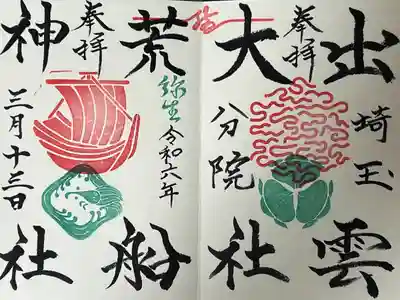 奉拝
出雲
大社
埼玉
分院
奉拝
荒船
神社
弥生
令和六年
三月十三日